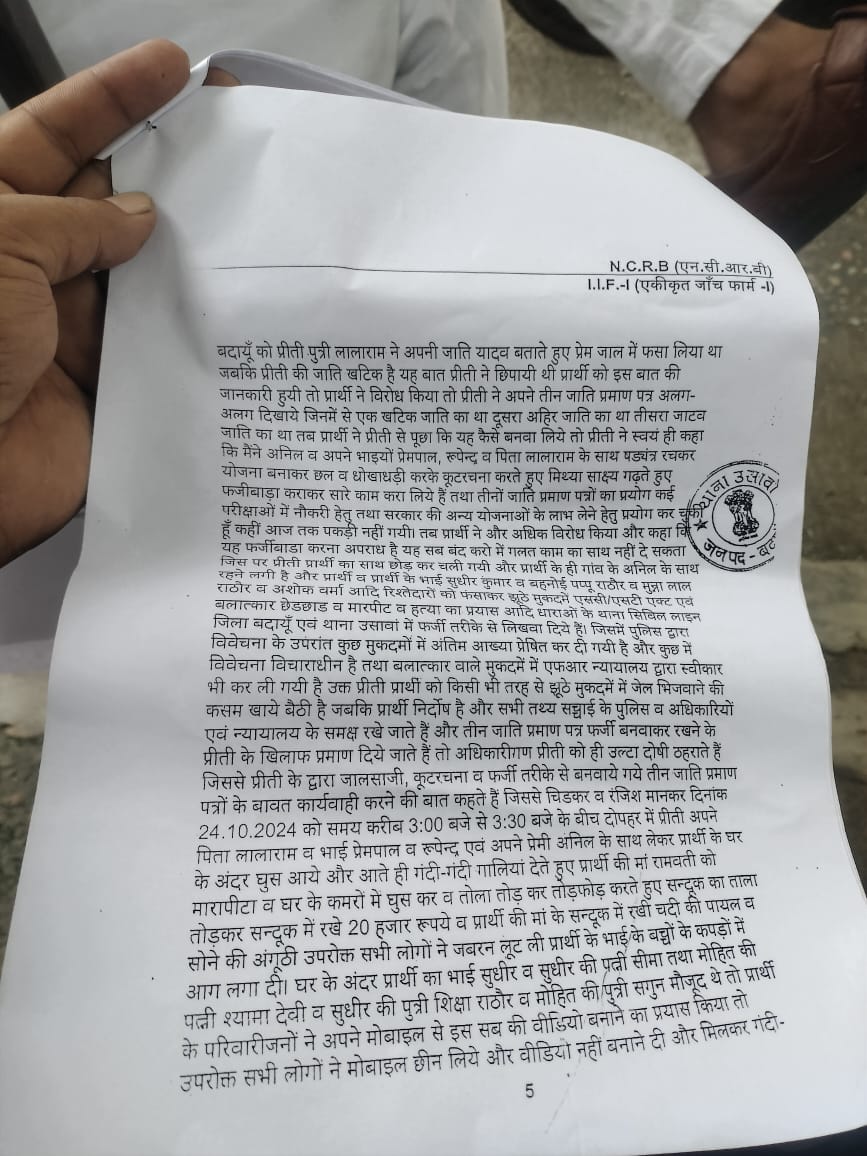 N.C.R.B (एन.सी.आर.बी)
I.I.F.-I (एकीकृत जाँच फार्म -I)
बदायूँ को प्रीती पुत्री लालाराम ने अपनी जाति यादव बताते हुए प्रेम जाल में फसा लिया था
जबकि प्रीती की जाति खटिक है यह बात प्रीती ने छिपायी थी प्रार्थी को इस बात की
जानकारी हुयी तो प्रार्थी ने विरोध किया तो प्रीती ने अपने तीन जाति प्रमाण पत्र अलग-
अलग दिखाये जिनमें से एक खटिक जाति का था दूसरा अहिर जाति का था तीसरा जाटव
जाति का था तब प्रार्थी ने प्रीती से पूछा कि यह कैसे बनवा लिये तो प्रीती ने स्वयं ही कहा
कि मैंने अनिल व अपने भाइयों प्रेमपाल, रूपेन्द्र व पिता लालाराम के साथ षडयंत्र रचकर
योजना बनाकर छल व धोखाधड़ी करके कूटरचना करते हुए मिथ्या साक्ष्य गढ़ते हुए
फर्जीबाड़ा कराकर सारे काम करा लिये हैं तथा तीनों जाति प्रमाण पत्रों का प्रयोग कई
परीक्षाओं में नौकरी हेतु तथा सरकार की अन्य योजनाओं के लाभ लेने हेतु प्रयोग कर चुकी
हूँ कहीं आज तक पकड़ी नहीं गयी। तब प्रार्थी ने और अधिक विरोध किया और कहा कि
यह फर्जीबाडा करना अपराध है यह सब बंद करो में गलत काम का साथ नहीं दे सकता
जिस पर प्रीती प्रार्थी का साथ छोड़ कर चली गयी और प्रार्थी के ही गांव के अनिल के साथ
रहने लगी है और प्रार्थी व प्रार्थी के भाई सुधीर कुमार व बहनोई पप्पू राठौर व मुन्ना लाल
राठौर व अशोक वर्मा आदि रिश्तेदारों को फंसाकर झूठे मुकदमें एससी/एसटी एक्ट एवं
बलात्कार छेडछाड व मारपीट व हत्या का प्रयास आदि धाराओं के थाना सिविल लाइन
जिला बदायूँ एवं थाना उसावां में फर्जी तरीके से लिखवा दिये हैं। जिसमें पुलिस द्वारा
विवेचना के उपरांत कुछ मुकदमों में अंतिम आख्या प्रेषित कर दी गयी है और कुछ में
विवेचना विचाराधीन है तथा बलात्कार वाले मुकदमें में एफआर न्यायालय द्वारा स्वीकार
भी कर ली गयी है उक्त प्रीती प्रार्थी को किसी भी तरह से झूठे मुकदमें में जेल भिजवाने की
कसम खाये बैठी है जबकि प्रार्थी निर्दोष है और सभी तथ्य सच्चाई के पुलिस व अधिकारियों
एवं न्यायालय के समक्ष रखे जाते हैं और तीन जाति प्रमाण पत्र फर्जी बनवाकर रखने के
प्रीती के खिलाफ प्रमाण दिये जाते हैं तो अधिकारीगण प्रीती को ही उल्टा दोषी ठहराते हैं
जिससे प्रीती के द्वारा जालसाजी, कूटरचना व फर्जी तरीके से बनवाये गये तीन जाति प्रमाण
पत्रों के बावत कार्यवाही करने की बात कहते हैं जिससे चिडकर व रंजिश मानकर दिनांक
24.10.2024 को समय करीब 3:00 बजे से 3:30 बजे के बीच दोपहर में प्रीती अपने
पिता लालाराम व भाई प्रेमपाल व रूपेन्द्र एवं अपने प्रेमी अनिल के साथ लेकर प्रार्थी के घर
के अंदर घुस आये और आते ही गंदी-गंदी गालियां देते हुए प्रार्थी की मां रामवती को
मारापीटा व घर के कमरों में घुस कर व तोला तोड़ कर तोड़फोड़ करते हुए सन्दूक का ताला
तोड़कर सन्दूक में रखे 20 हजार रूपये व प्रार्थी की मां के सन्दूक में रखी चदी की पायल व
सोने की अंगूठी उपरोक्त सभी लोगों ने जबरन लूट ली प्रार्थी के भाई के बच्चों के कपड़ों में
आग लगा दी। घर के अंदर प्रार्थी का भाई सुधीर व सुधीर की पत्नी सीमा तथा मोहित की
पत्नी श्यामा देवी व सुधीर की पुत्री शिक्षा राठौर व मोहित की पुत्री सगुन मौजूद थे तो प्रार्थी
के परिवारीजनों ने अपने मोबाइल से इस सब की वीडियो बनाने का प्रयास किया तो
उपरोक्त सभी लोगों ने मोबाइल छीन लिये और वीडियो नहीं बनाने दी और मिलकर गंदी-
5
थाना उसावां
जनपद -